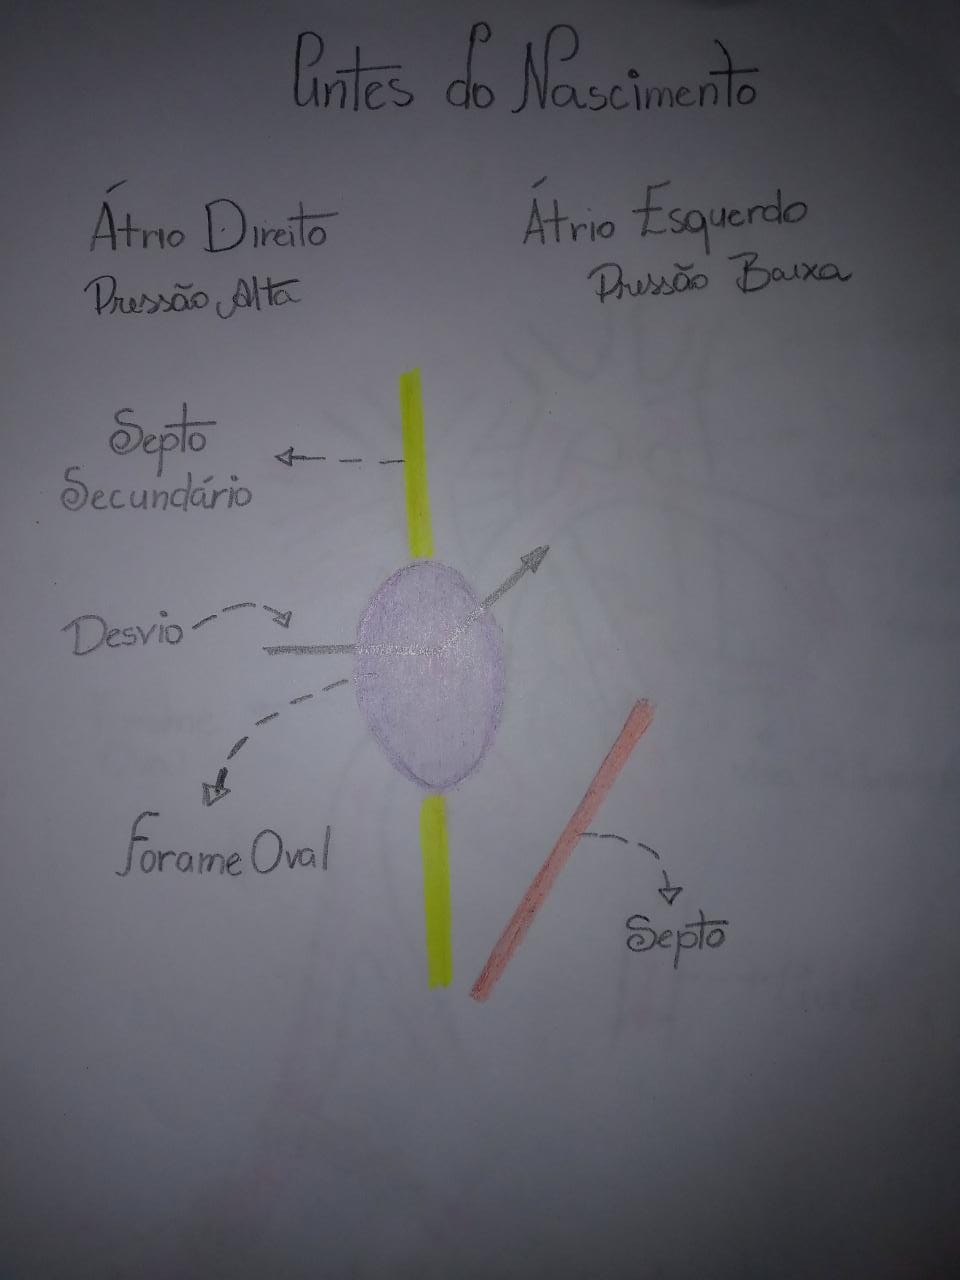 Antes do Nascimento
Átrio Direito
Pressão Alta
Átrio Esquerdo
Pressão Baixa
Septo
Secundário
Desvio
Forame Oval
Septo